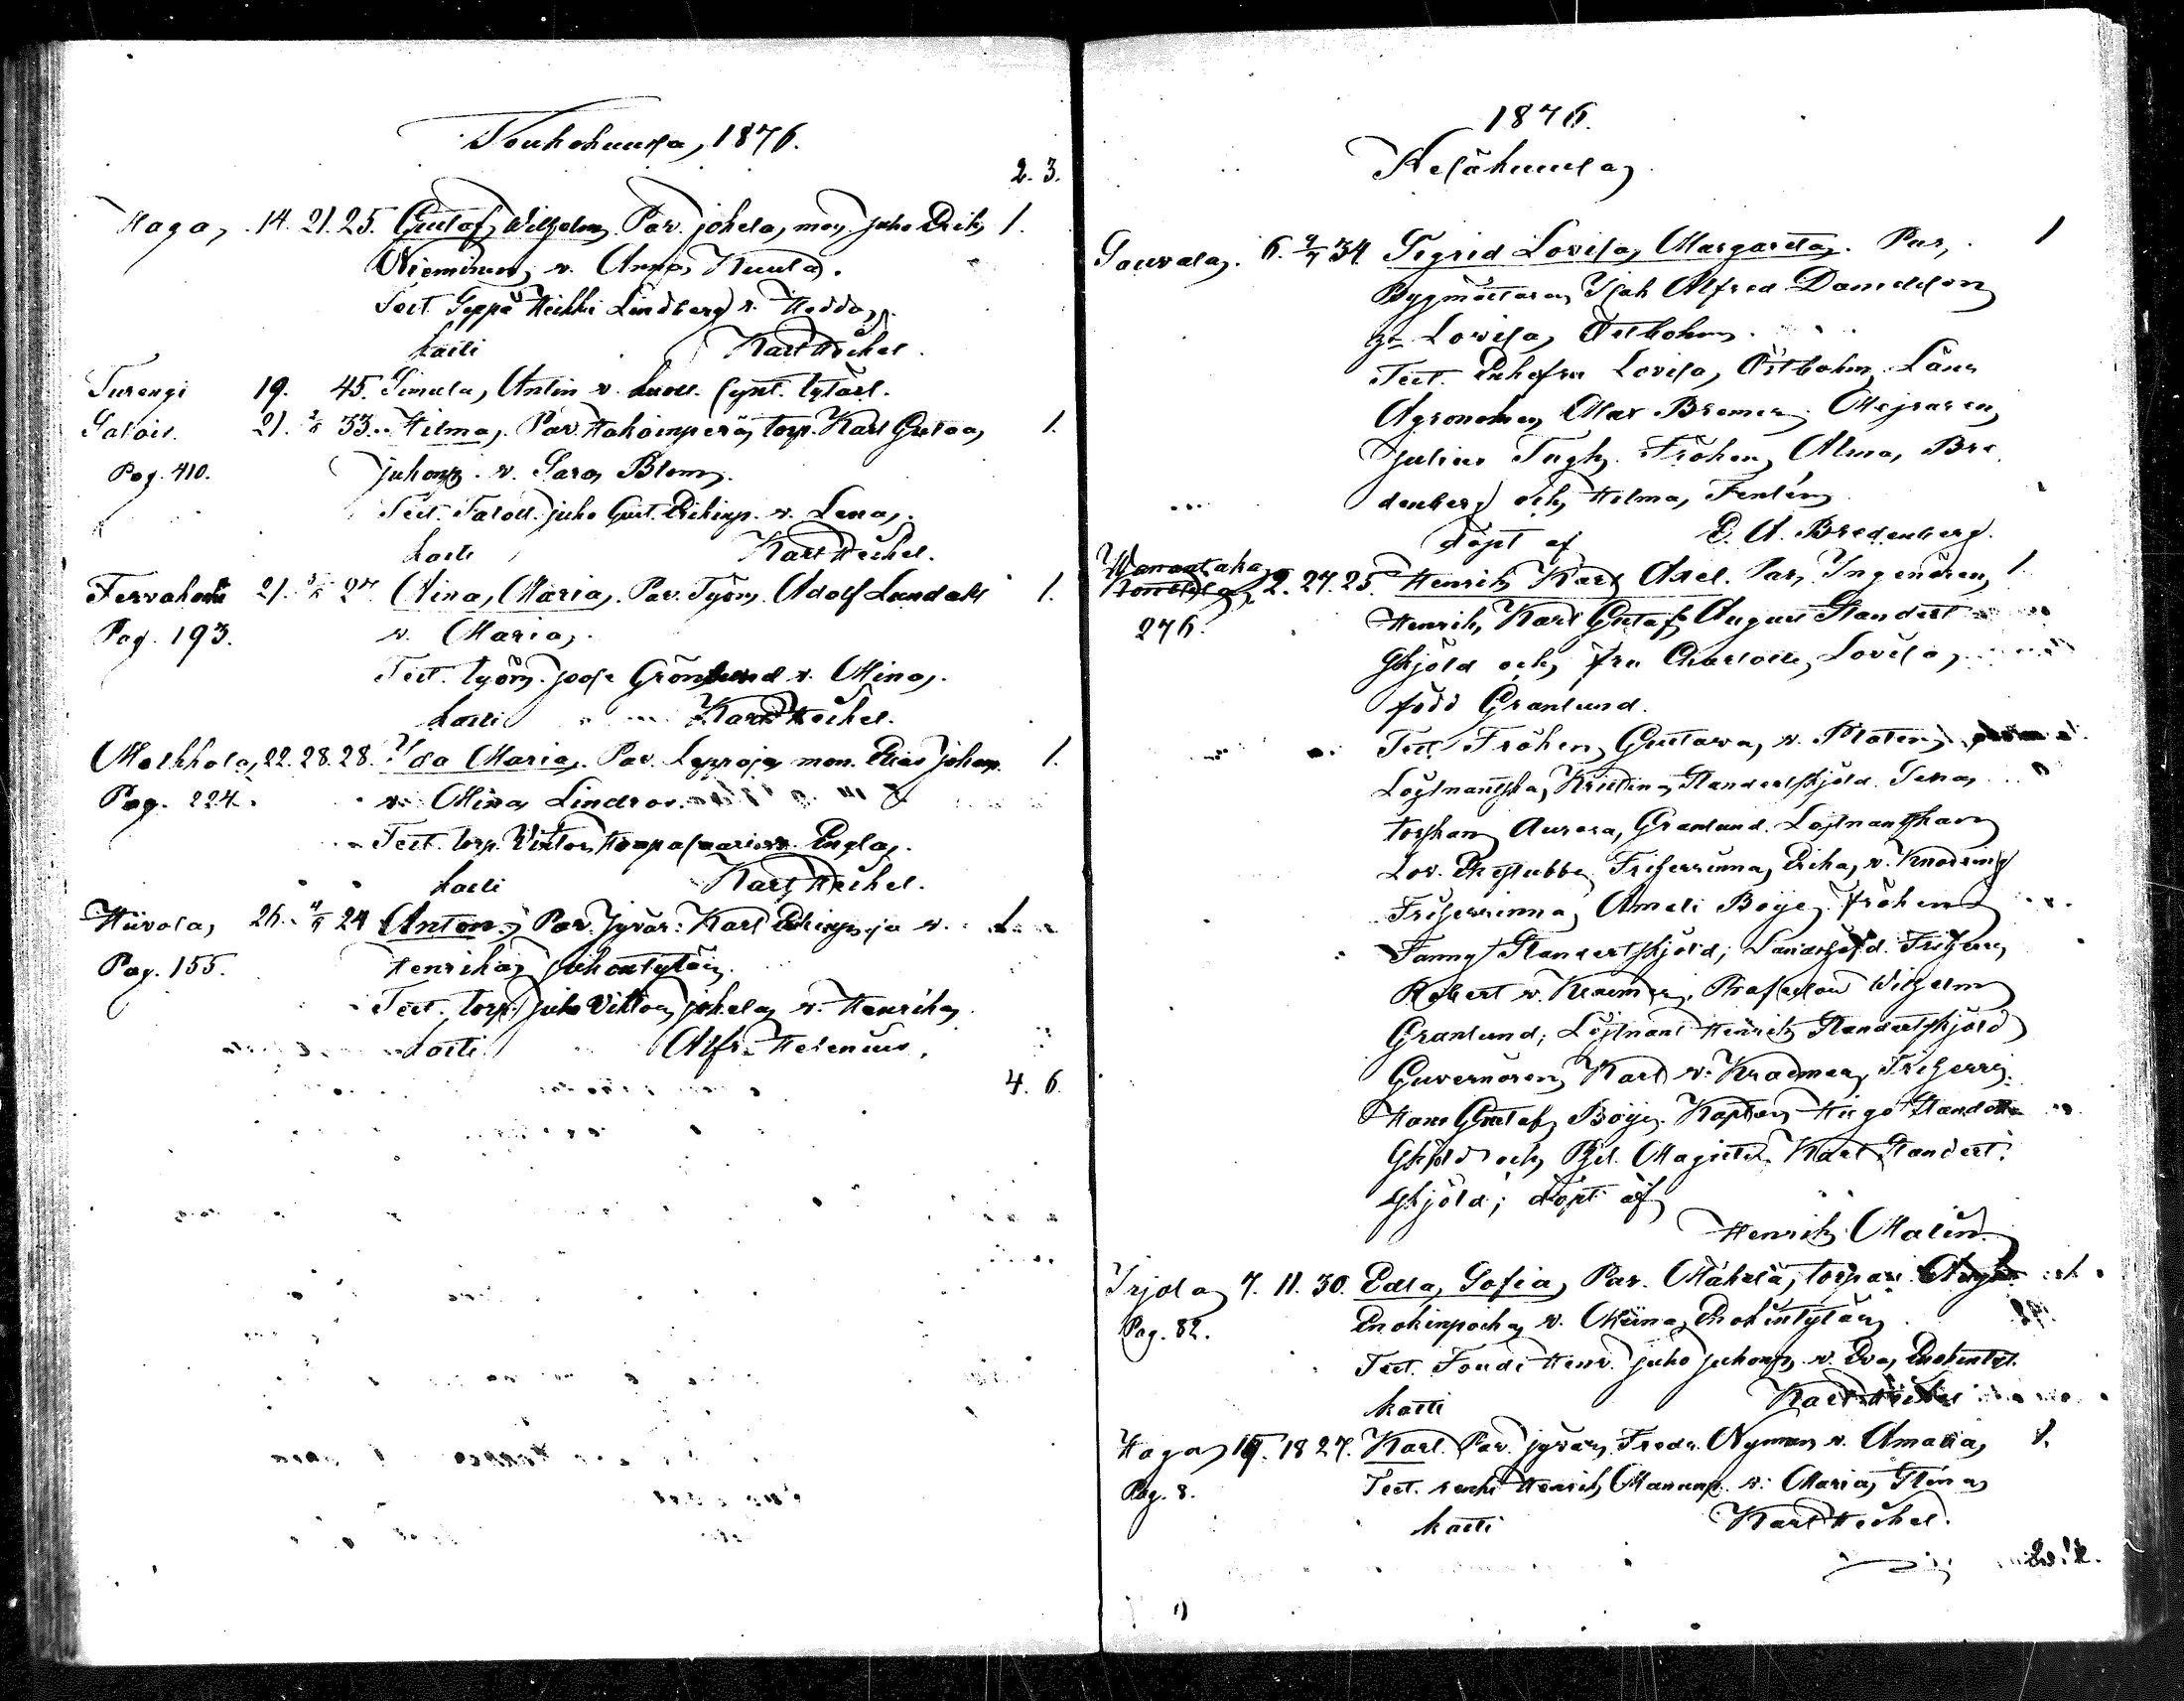 Toukokuussa, 1876.
2. 3.
Haga, 14. 21. 25. Gustaf Wilhelm, Par. Johela, mon. Juho Erik 1.
Nieminen v. Anna Kuula.
Test. Seppä Heikki Lindberg v. Hedda,
kasti Karl Heikel.
Turengi 19. 45. Simula, Antin v. kuoll. synt. tytärl.
Salois. 21. 2/6 33. Hilma, Par. Hakoinperä, torp. Karl Gustaa 1.
Pag. 410. Juhonp. v. Sara Blom,
Test. Taloll. Juho Gust. Erikinp. v. Lena,
kasti Karl Heikel.
21. 5/6 27. Aina, Maria, Par. Työm. Adolf Lundahl 1.
Pag. 193. v. Maria,
Test. työm. Joose Grönlund v. Mina,
kasti Karl Heikel.
Melkkola, 22. 28. 28. Ida Maria, Par. Leppoja, mon. Elias Johan. 1.
Pag. 224. v. Mina Lindroos.
Test. torp. Viktor Haapasaari v. Engla,
kasti Karl Heikel.
Hiivola, 26. 4/6 24 Anton, Par. Jyvär: Karl Erkinpoja v. 1
Pag. 155. Henrika Juhontytär,
Test. torp. Juho Viktor Johela v. Henrika
kasti Alfr. Helenius.
4. 6.
1876.
Kesäkuussa
Sauvala, 6. 9/7 34 Sigrid Lovisa, Margareta, Par, 1
Byggmästaren Isak Alfred Danielson
Lovisa, Östbohm.
Test. Enkefru Lovisa, Östbohm, Läns
Agronomen Max Bremer, Mejraren
Julius Tugh, Fröken Alma, Bre
denberg och Hilma, Fenlén
döpt af E. A. Bredenberg.
Wanantaka, 2. 27. 25. Henrik Karl Axel. Par, Ingenören, 1.
276. Henrik, Karl Gustaf August Standert
skjöld och fru Charlotte, Lovisa,
född Granlund.
Test. Fröken Gustava, v. Platen,
Löjtnantska, Kristina Standertskjöld. Sena
torskan Aurora, Granlund. Löjtnantskan
Lov. Ehrstubbe, Friherrinna, Erika, v. Knorring
Friherrinna, Ameli Boije, fröken
Fanny Standertskjöld; Landshöfd. Friherre
Robert v. Kraemer, Professor Wilhelm
Granlund; Löjtnant Henrik Standertskjöld
Guvernören Karl v. Kraemer, Friherre
Hans Gustaf, Boije, Kapten Hugo Standert
skjöld och Fil. Magister Karl Standert
skjöld; döpt af
Henrik Malin.
Irjola 7. 11. 30. Edla, Sofia, Par. Mäkelä, torpari 1
Pag. 82. Enokinpoika v. Miina, Enokintytär,
Test. Henr. Juho Juhonp. v. Eva, Enokintyt.
kasti Karl Heikel
Haga, 18 27. Karl. Par. Jyvär, Fredr. Nyman v. Amalia, 1.
Pag. 8. Test. renki Henrik Manunp. v. Maria, Stina
kasti Karl Heikel.